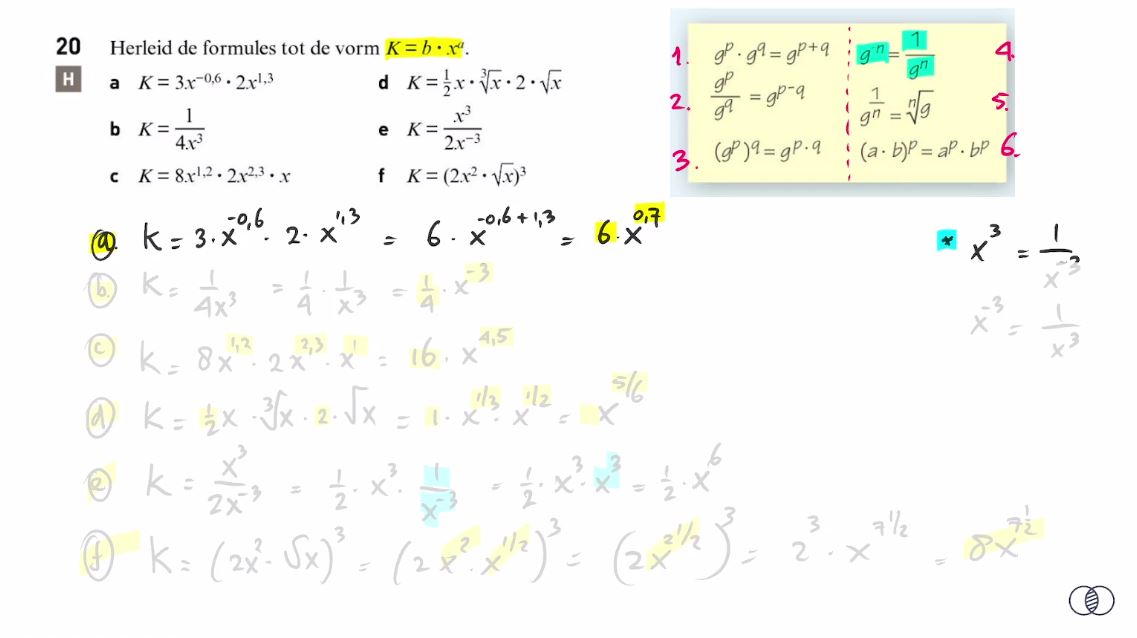 20 Herleid de formules tot de vorm K = b · xᵃ.
H
a K = 3x⁻⁰,⁶ · 2x¹,³
b K = 1/(4x³)
c K = 8x¹,² · 2x²,³ · x
d K = ½x · ∛x · 2 · √x
e K = x³/(2x⁻³)
f K = (2x² · √x)³
1. gᵖ · g^q = g^(p+q)
2. gᵖ/g^q = g^(p-q)
3. (gᵖ)^q = g^(p·q)
4. g⁻ⁿ = 1/gⁿ
5. g^(1/n) = ⁿ√g
6. (a · b)ᵖ = aᵖ · bᵖ
a. K = 3·x^(-0,6) · 2·x^(1,3) = 6·x^(-0,6+1,3) = 6·x^(0,7)
b. K = 1/(4x³) = 1/4 · 1/x³ = 1/4 · x⁻³
c K = 8x^(1,2) · 2x^(2,3) · x¹ = 16 · x^(4,5)
d K = ½x · ∛x · 2 · √x = 1 · x^(1/3) · x^(1/2) = x^(5/6)
e K = x³/(2x⁻³) = 1/2 · x³ · 1/x⁻³ = 1/2 · x³ · x³ = 1/2 · x⁶
f K = (2x² · √x)³ = (2x² · x^(1/2))³ = (2x^(2 1/2))³ = 2³ · x^(7 1/2) = 8x^(7 1/2)
* x³ = 1/x⁻³
x⁻³ = 1/x³